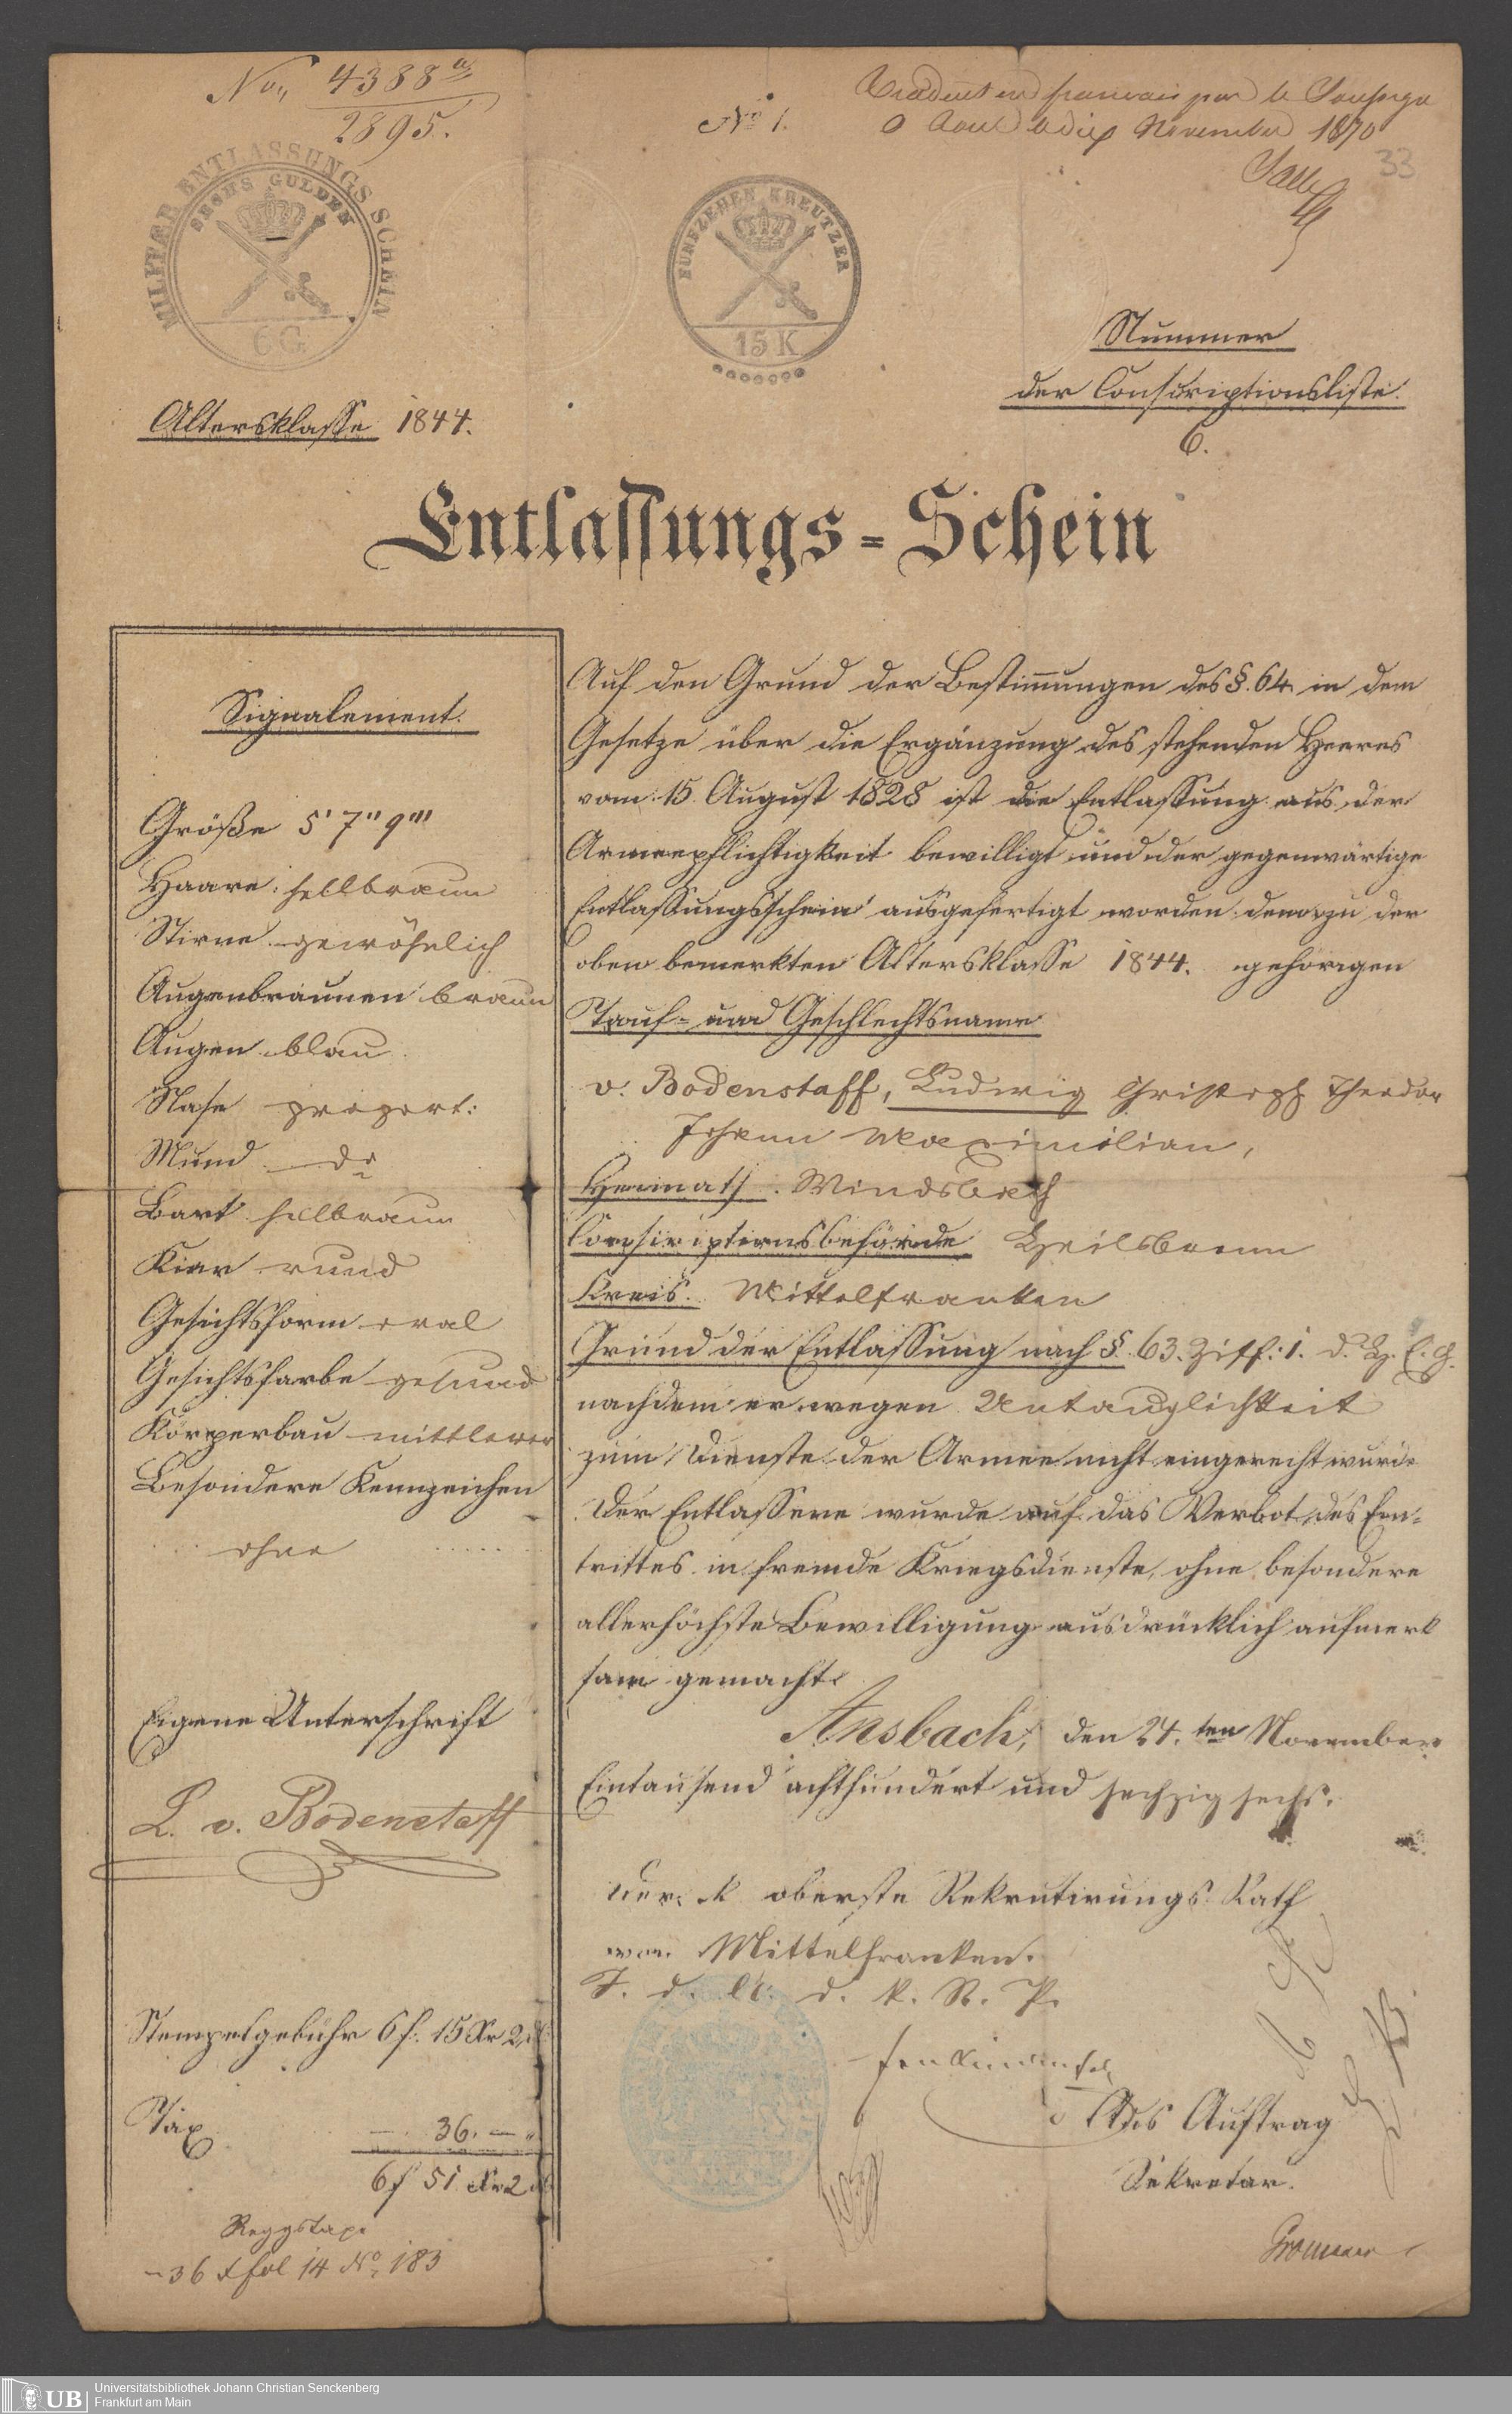 No. 4388 a
2895.
No 1.
Traduit en français par le Soussigné
Novembre 1870
33
MILITÆR ENTLASSUNGS SCHEIN
SECHS GULDEN
6 G
FUNFZEHEN KREUTZER
15 K
Nummer
der Conscriptionsliste.
6.
Altersklasse 1844.
Entlassungs-Schein
Signalement.
Größe 5' 7" 9'''
Haare: hellbraun
Stirne gewöhnlich
Augenbraunen braun
Augen blau
Nase proport:
Mund do
Bart hellbraun
Kinn rund
Gesichtsform oval
Gesichtsfarbe gesund
Körperbau mittlerer
Besondere Kennzeichen
ohne
Eigene Unterschrift
L. v. Bodenstaff
Stempelgebühr 6 f. 15 Kr 2
Tax 36. —
6 f 51 Kr 2
Reggstaxe
36 x fol 14 No 183
Auf den Grund der Bestim̄ungen des §. 64 in dem
Gesetze über die Ergänzung des stehenden Heeres
vom 15 August 1828 ist die Entlassung aus der
Armeepflichtigkeit bewilligt und der gegenwärtige
Entlassungsschein ausgefertigt worden dem zu der
oben bemerkten Altersklasse 1844. gehörigen
Tauf- und Geschlechtsname
v. Bodenstaff, Ludwig Christoph Theodor
Johann Maximilian,
Heimath. Windsbach
Conscriptionsbehörde Heilsbronn
Kreis. Mittelfranken
Grund der Entlassung nach §. 63. Ziff: 1. d. H. E. G.
nachdem er wegen Untauglichkeit
zum Dienste der Armee nicht eingereiht wurde
Der Entlassene wurde auf das Verbot des Ein-
trittes in fremde Kriegsdienste, ohne besondere
allerhöchste Bewilligung ausdrücklich aufmerk
sam gemacht.
Ansbach, den 24. ten November
Eintausend achthundert und sechzig sechs.
Der k oberste Rekrutirungs Rath
von Mittelfranken.
d. k. R. P.
Aus Auftrag
Sekretär.
UB
Universitätsbibliothek Johann Christian Senckenberg
Frankfurt am Main